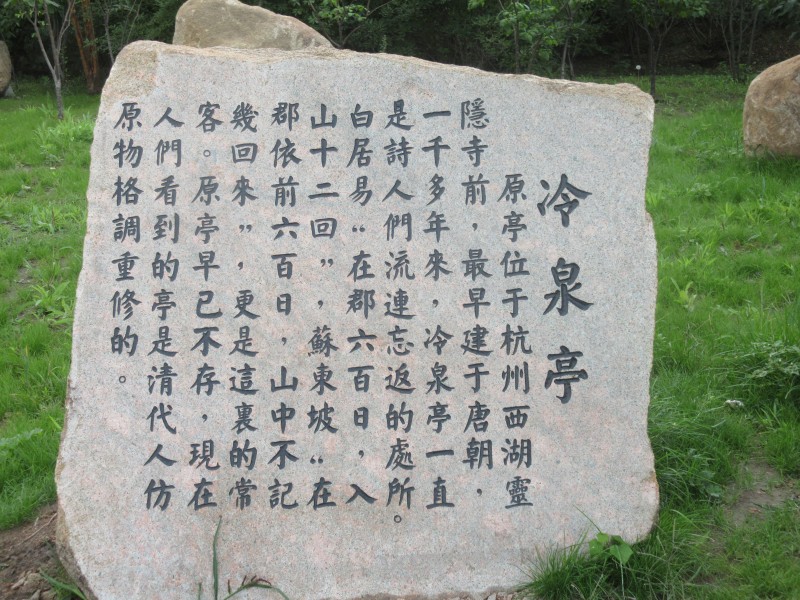 冷泉亭
原亭位于杭州西湖靈
隱寺前，最早建于唐朝，
一千多年來，冷泉亭一直
是詩人們流連忘返的處所。
白居易“在郡六百日，入
山十二回”，蘇東坡“在
郡依前六百日，山中不記
幾回來”，更是這裏的常
客。原亭早已不存，現在
人們看到的亭是清代人仿
原物格調重修的。